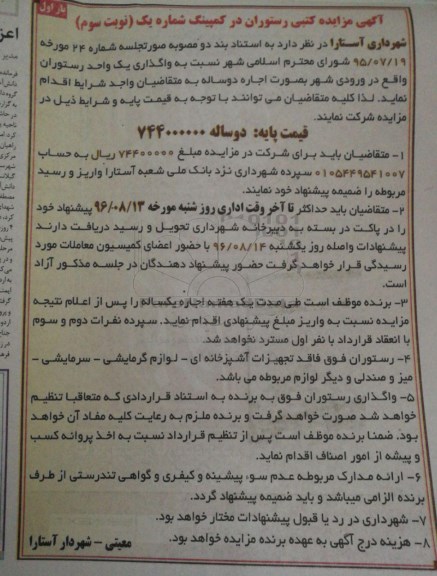 بار اول
آگهی مزایده کتبی رستوران در کمپینگ شماره یک (نوبت سوم)
شهرداری آستارا در نظر دارد به استناد بند دو مصوبه صورتجلسه شماره ۲۴ مورخه
۹۵/۰۷/۱۹ شورای محترم اسلامی شهر نسبت به واگذاری یک واحد رستوران
واقع در ورودی شهر بصورت اجاره دوساله به متقاضیان واجد شرایط اقدام
نماید. لذا کلیه متقاضیان می توانند با توجه به قیمت پایه و شرایط ذیل در
مزایده شرکت نمایند.
قیمت پایه: دوساله ۷۴۴۰۰۰۰۰۰
۱- متقاضیان باید برای شرکت در مزایده مبلغ ۷۴۴۰۰۰۰۰ ریال به حساب
۰۱۰۵۴۴۹۵۴۱۰۰۷ سپرده شهرداری نزد بانک ملی شعبه آستارا واریز و رسید
مربوطه را ضمیمه پیشنهاد خود نمایند.
۲- متقاضیان باید حداکثر تا آخر وقت اداری روز شنبه مورخه ۹۶/۰۸/۱۳ پیشنهاد خود
را در پاکت در بسته به دبیرخانه شهرداری تحویل و رسید دریافت دارند
پیشنهادات واصله روز یکشنبه ۹۶/۰۸/۱۴ با حضور اعضای کمیسیون معاملات مورد
رسیدگی قرار خواهد گرفت حضور پیشنهاد دهندگان در جلسه مذکور آزاد
است.
۳- برنده موظف است طی مدت یک هفته اجاره یکساله را پس از اعلام نتیجه
مزایده نسبت به واریز مبلغ پیشنهادی اقدام نماید. سپرده نفرات دوم و سوم
با انعقاد قرارداد با نفر اول مسترد نخواهد شد.
۴- رستوران فوق فاقد تجهیزات آشپزخانه ای - لوازم گرمایشی - سرمایشی -
میز و صندلی و دیگر لوازم مربوطه می باشد.
۵- واگذاری رستوران فوق به برنده به استناد قراردادی که متعاقبا تنظیم
خواهد شد صورت خواهد گرفت و برنده ملزم به رعایت کلیه مفاد آن خواهد
بود. ضمنا برنده موظف است پس از تنظیم قرارداد نسبت به اخذ پروانه کسب
و پیشه از امور اصناف اقدام نماید.
۶- ارائه مدارک مربوطه عدم سوء پیشینه و کیفری و گواهی تندرستی از طرف
برنده الزامی میباشد و باید ضمیمه پیشنهاد گردد.
۷- شهرداری در رد یا قبول پیشنهادات مختار خواهد بود.
۸- هزینه درج آگهی به عهده برنده مزایده خواهد بود.
معینی - شهردار آستارا